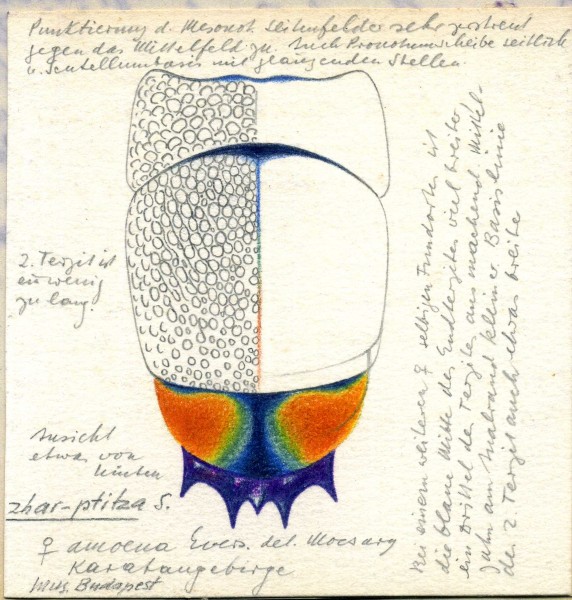 Punktierung d. Mesonot. Seitenfelder sehr zerstreut
gegen das Mittelfeld zu. Auch Pronotumscheibe seitlich
u. Scutellumbasis mit glänzenden Stellen.
2. Tergit ist
ein wenig
zu lang.
Ansicht
etwas von
hinten
zhar-ptitza S.
♀ amoena Evers. det. Mocsary
Karataugebirge
Mus. Budapest
Bei einem weiteren ♀ selbigen Fundortes ist
die blaue Mitte des Endtergites viel breiter
ein Drittel des Tergites ausmachend. Mittel-
zahn am Analrand kleiner. Basislinie
des 2 Tergit auch etwas breiter